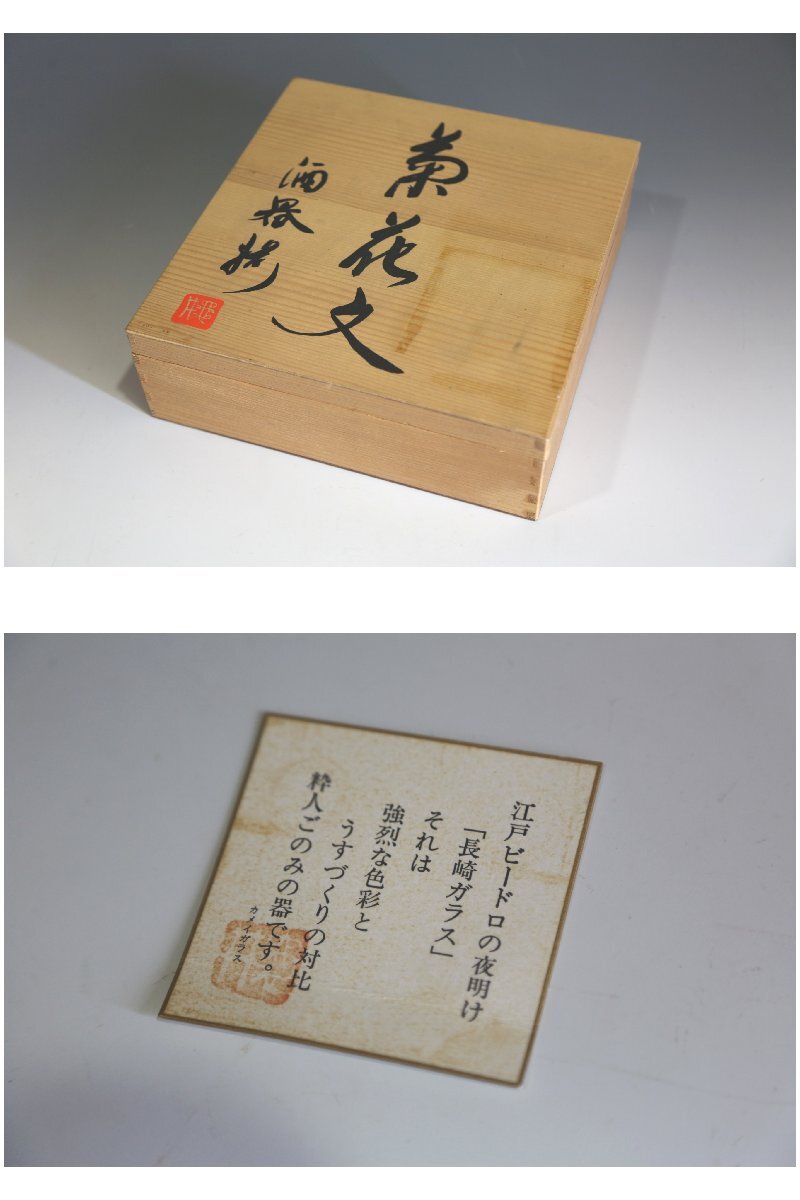 菊花文
酒器揃
江戸ビードロの夜明け
「長崎ガラス」
それは
強烈な色彩と
うすづくりの対比
粋人ごのみの器です。
カメイガラス